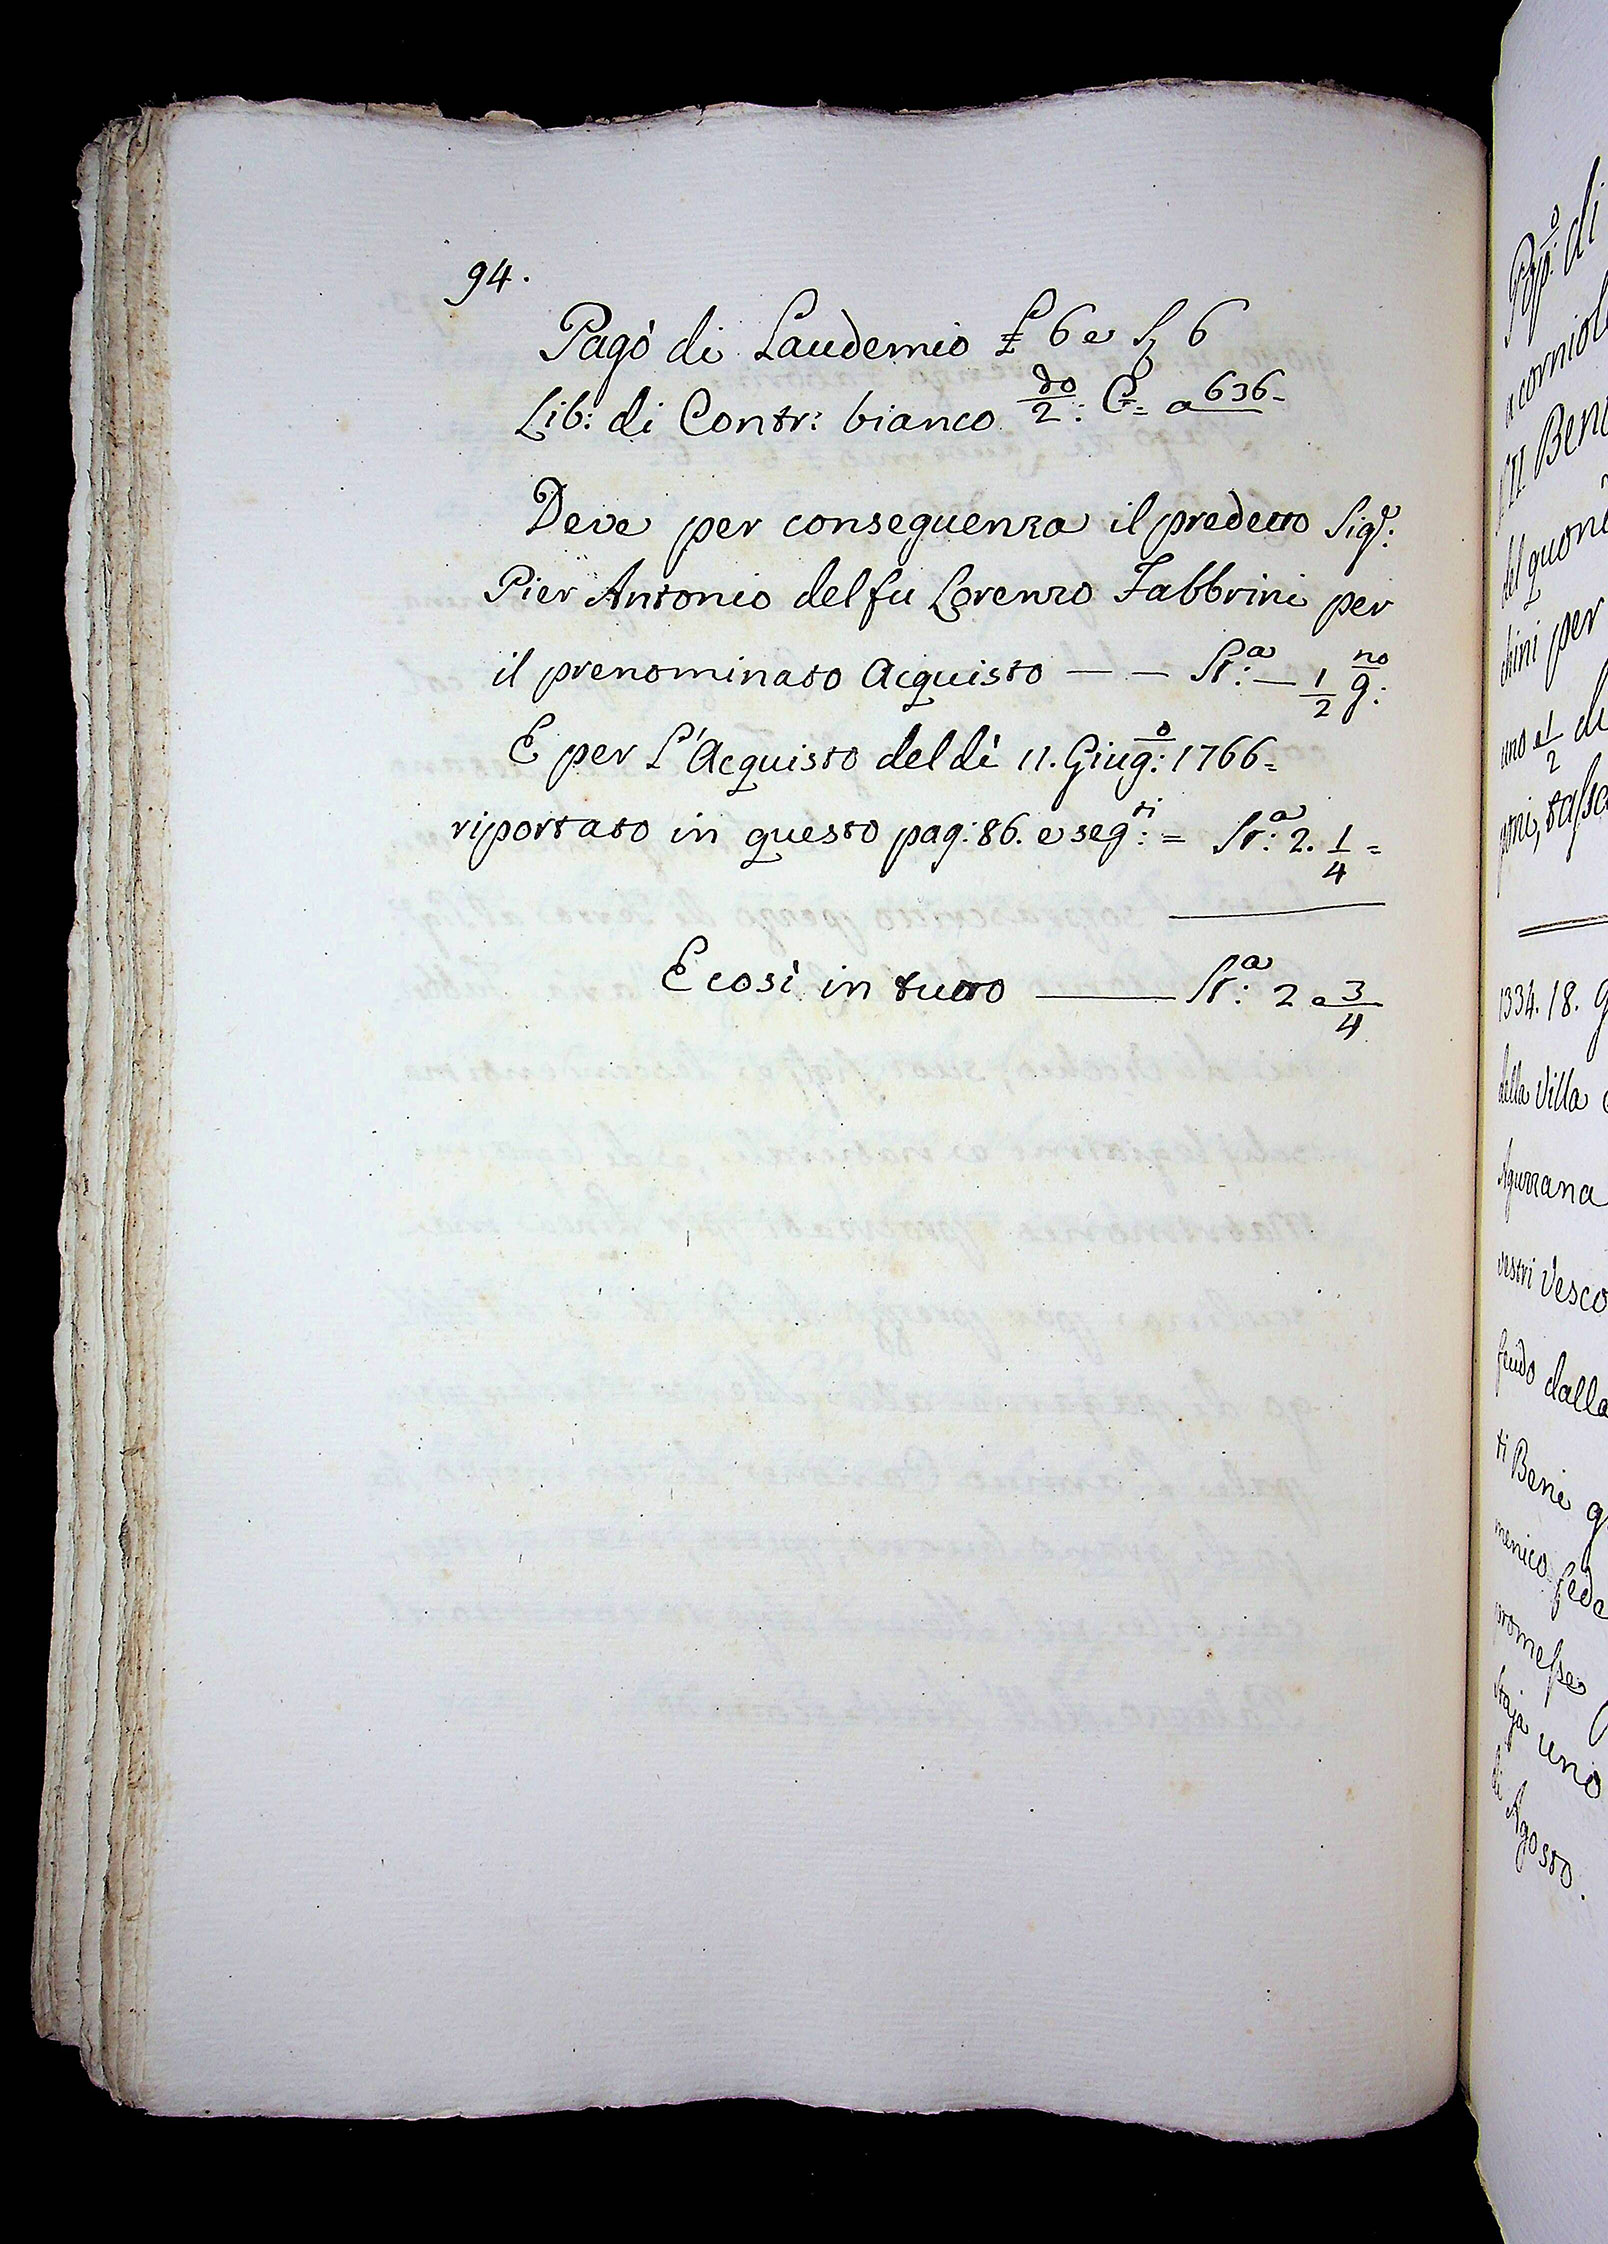 94.
Pagò di Laudemio £ 6 e S 6
Lib: di Contr: bianco 2:do C= a 636=
Deve per conseguenza il predetto Sigr:
Pier Antonio del fu Lorenzo Fabbrini per
il prenominato Acquisto — — St:a — 1/2 g:no
E per L'Acquisto del dì 11. Giug:o 1766=
riportato in questo pag: 86. e seg:ti = St:a 2. 1/4 =
E così in tutto — St:a 2 e 3/4
Pop:o di
a corniol
Beni
del quon
chini per
uno e 1/2 di
1334. 18. G
della Villa
Aguzzana
vestri Vesco
feudo dalla
ti Beni q
menico fede
promesse
Staja uno
di Agosto.